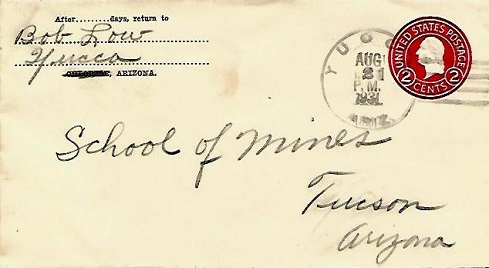 After........days, return to
Bob Low
Yucca
ARIZONA.
YUCCA
AUG
21
P.M.
1931
ARIZ.
UNITED STATES POSTAGE
2 CENTS 2
School of Mines
Tucson
Arizona